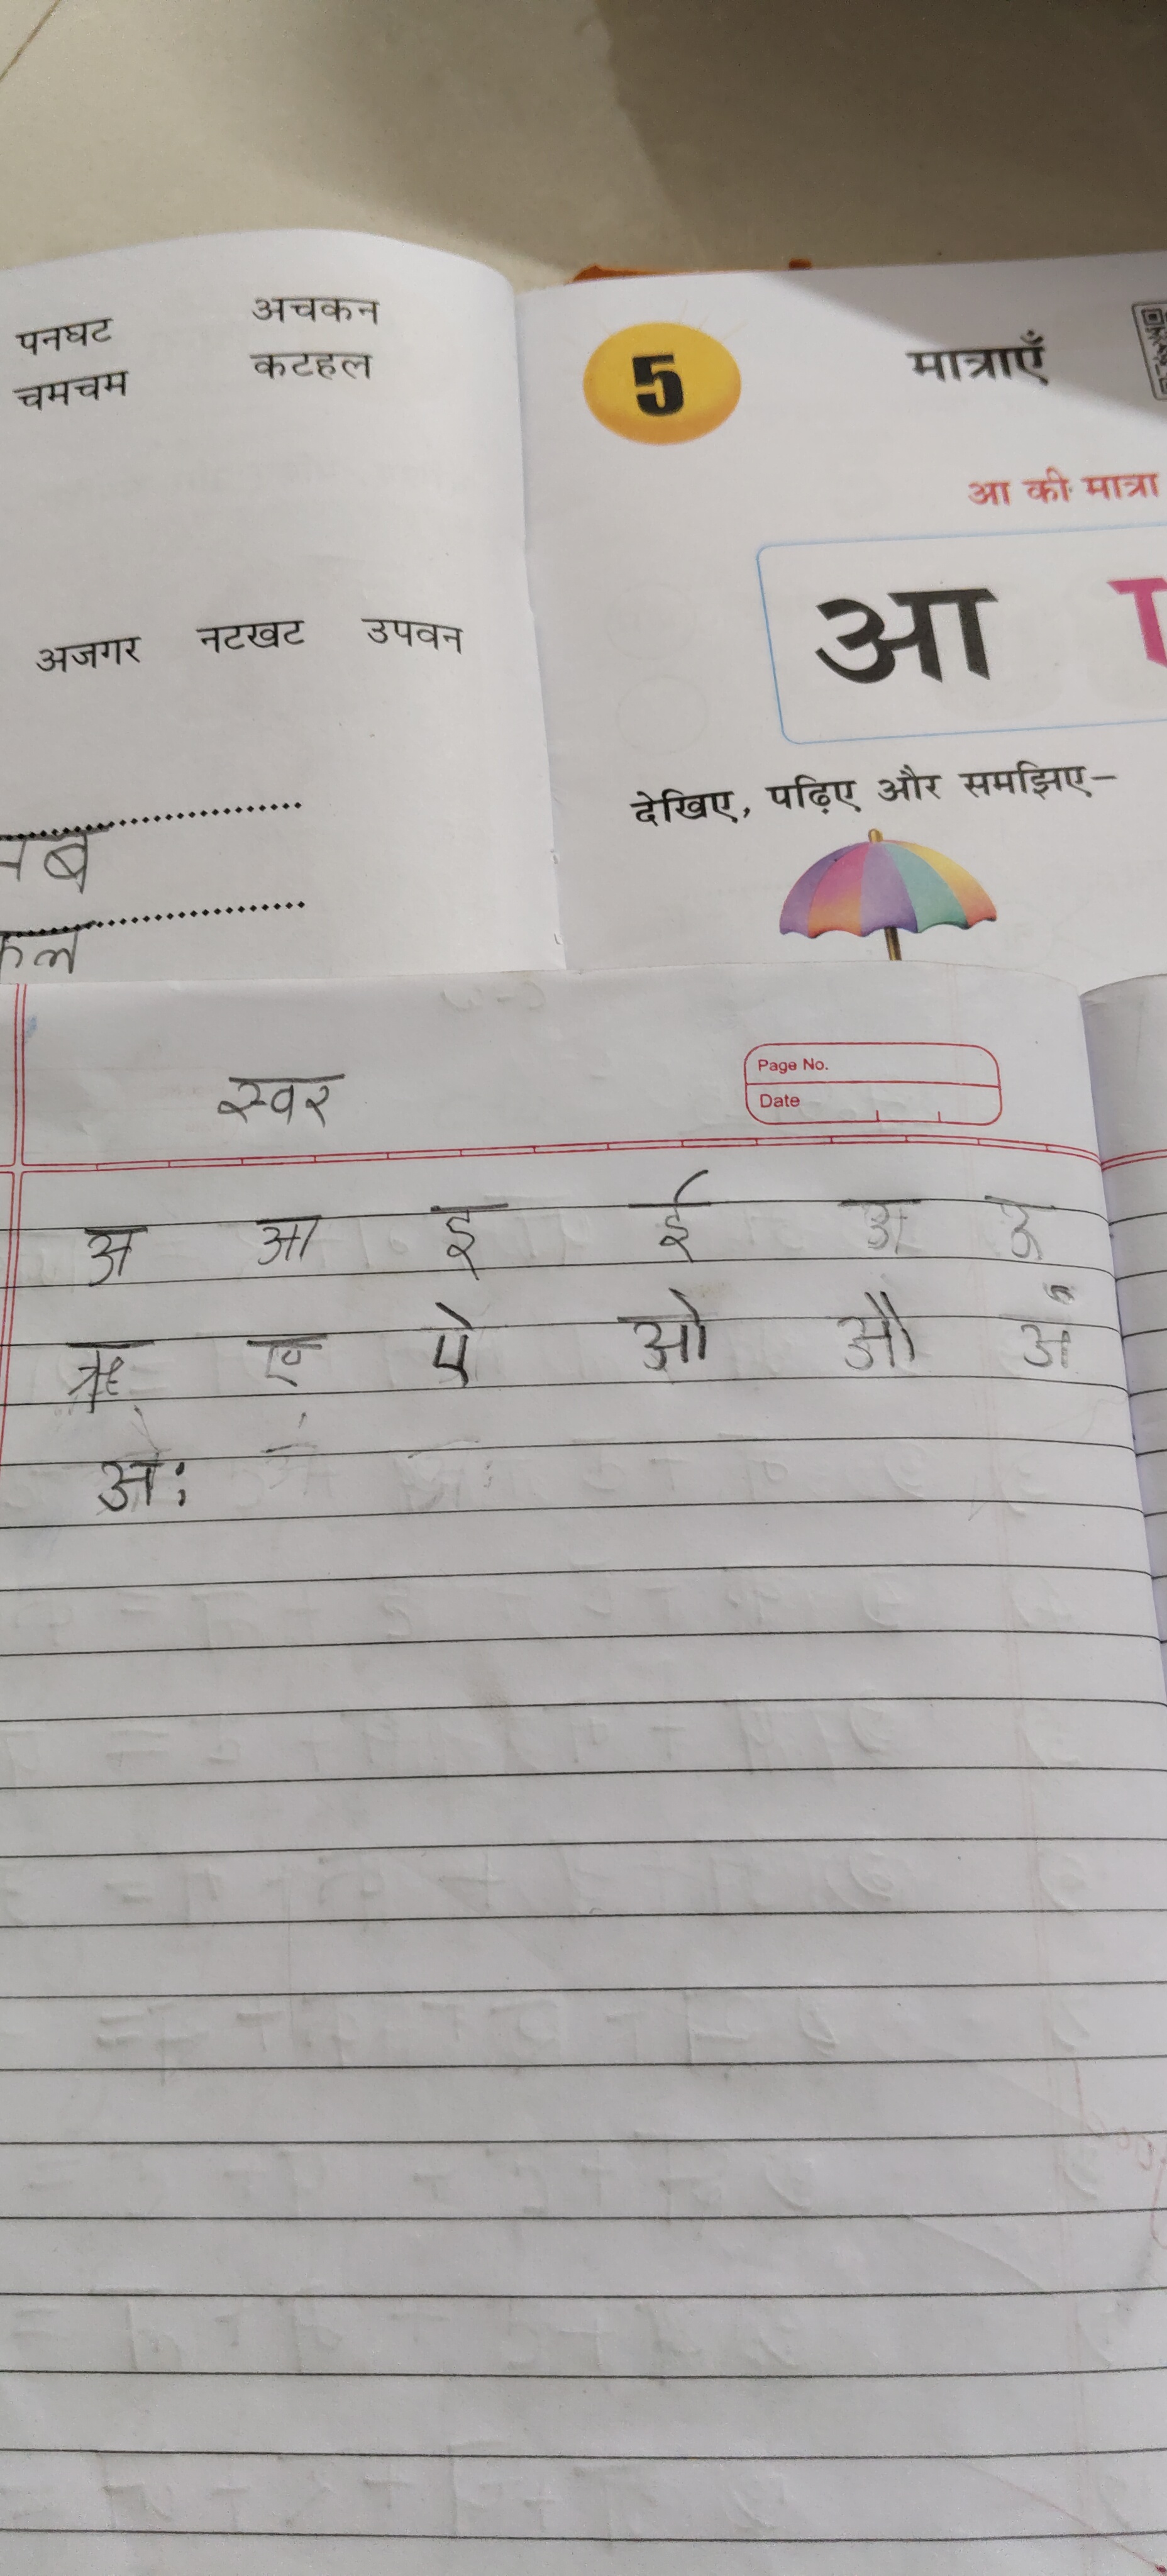 पनघट अचकन
चमचम कटहल
अजगर नटखट उपवन
5 मात्राएँ
आ की मात्रा
आ ा
देखिए, पढ़िए और समझिए–
स्वर
Page No.
Date
अ आ इ ई
ऋ ए ऐ ओ औ अं
अः